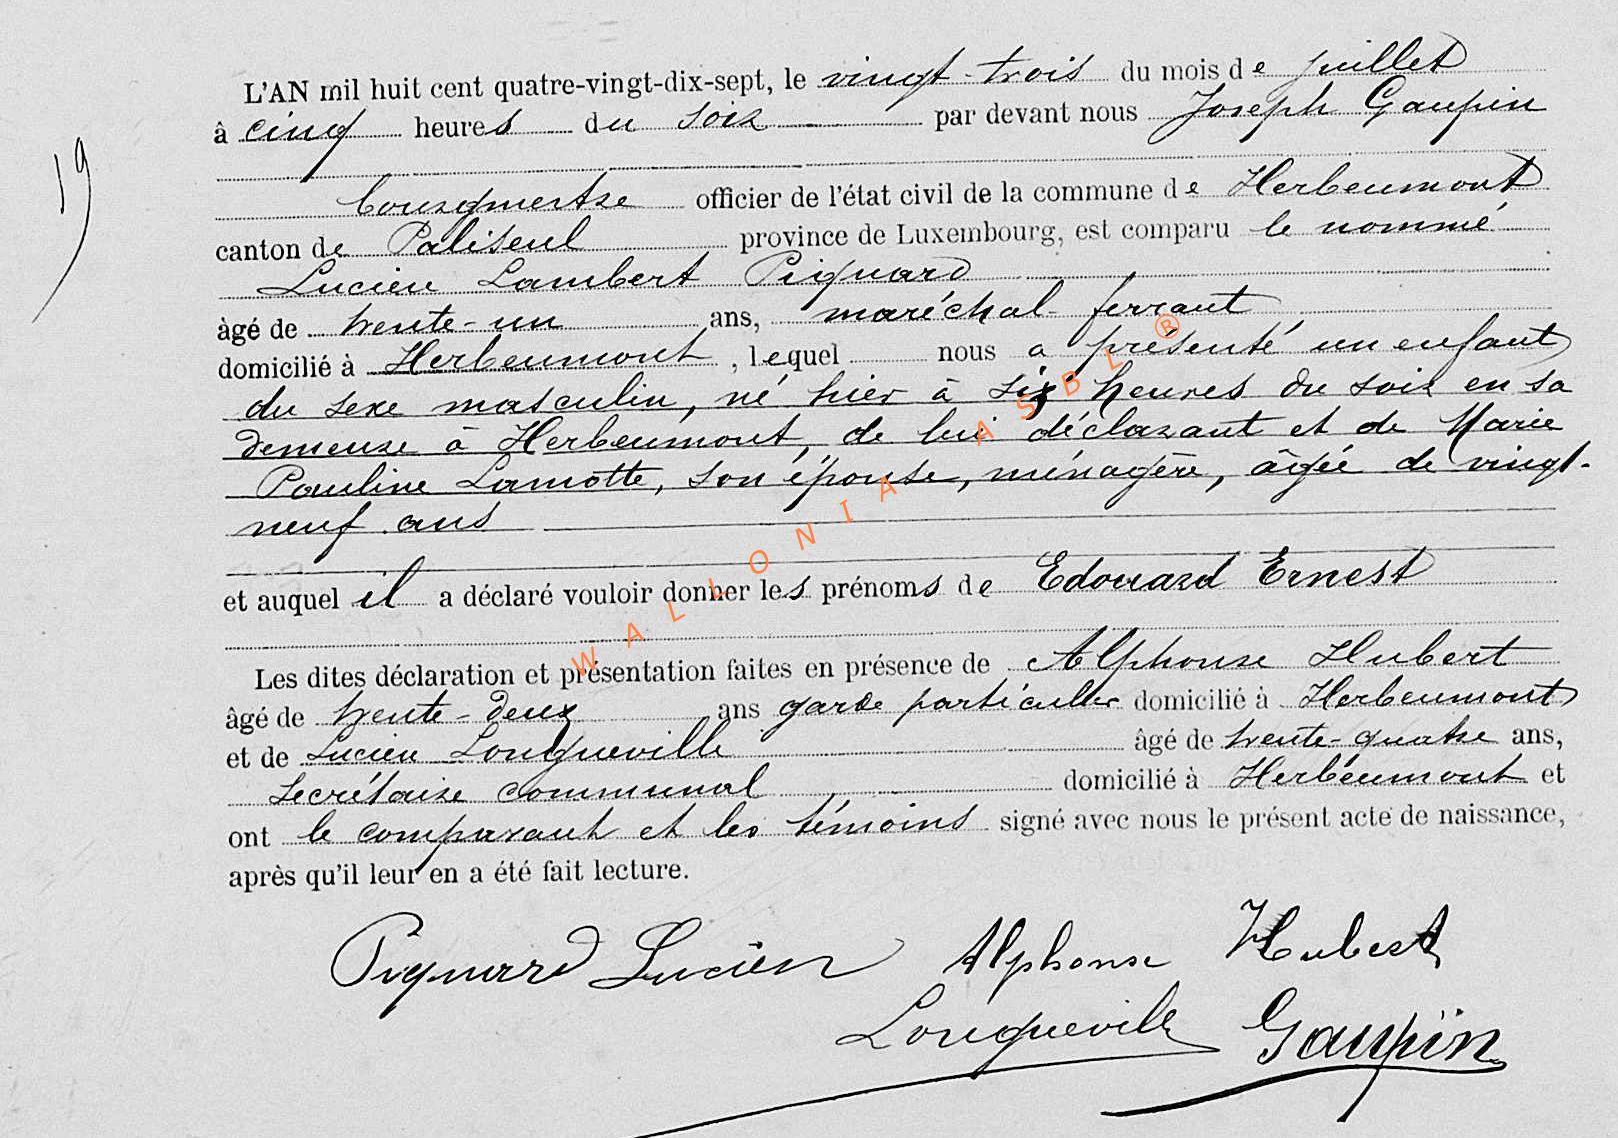 19
L'AN mil huit cent quatre-vingt-dix-sept, le vingt-trois du mois de juillet
à cinq heures du soir par devant nous Joseph Gaupin
Bourgmestre officier de l'état civil de la commune de Herbeumont
canton de Paliseul province de Luxembourg, est comparu le nommé
Lucien Lambert Pignard
âgé de trente-un ans, maréchal-ferrant
domicilié à Herbeumont, lequel nous a présenté un enfant
du sexe masculin, né hier à six heures du soir en sa
demeure à Herbeumont, de lui déclarant et de Marie
Pauline Lamotte, son épouse, ménagère, âgée de vingt-
neuf ans
et auquel il a déclaré vouloir donner les prénoms de Edouard Ernest
Les dites déclaration et présentation faites en présence de Alphonse Hubert
âgé de trente-deux ans garde particulier domicilié à Herbeumont
et de Lucien Longueville âgé de trente-quatre ans,
Secrétaire communal domicilié à Herbeumont et
ont le comparant et les témoins signé avec nous le présent acte de naissance,
après qu'il leur en a été fait lecture.
Pignard Lucien Alphonse Hubert
Longueville Gaupin
WALLONIA ASBL ®